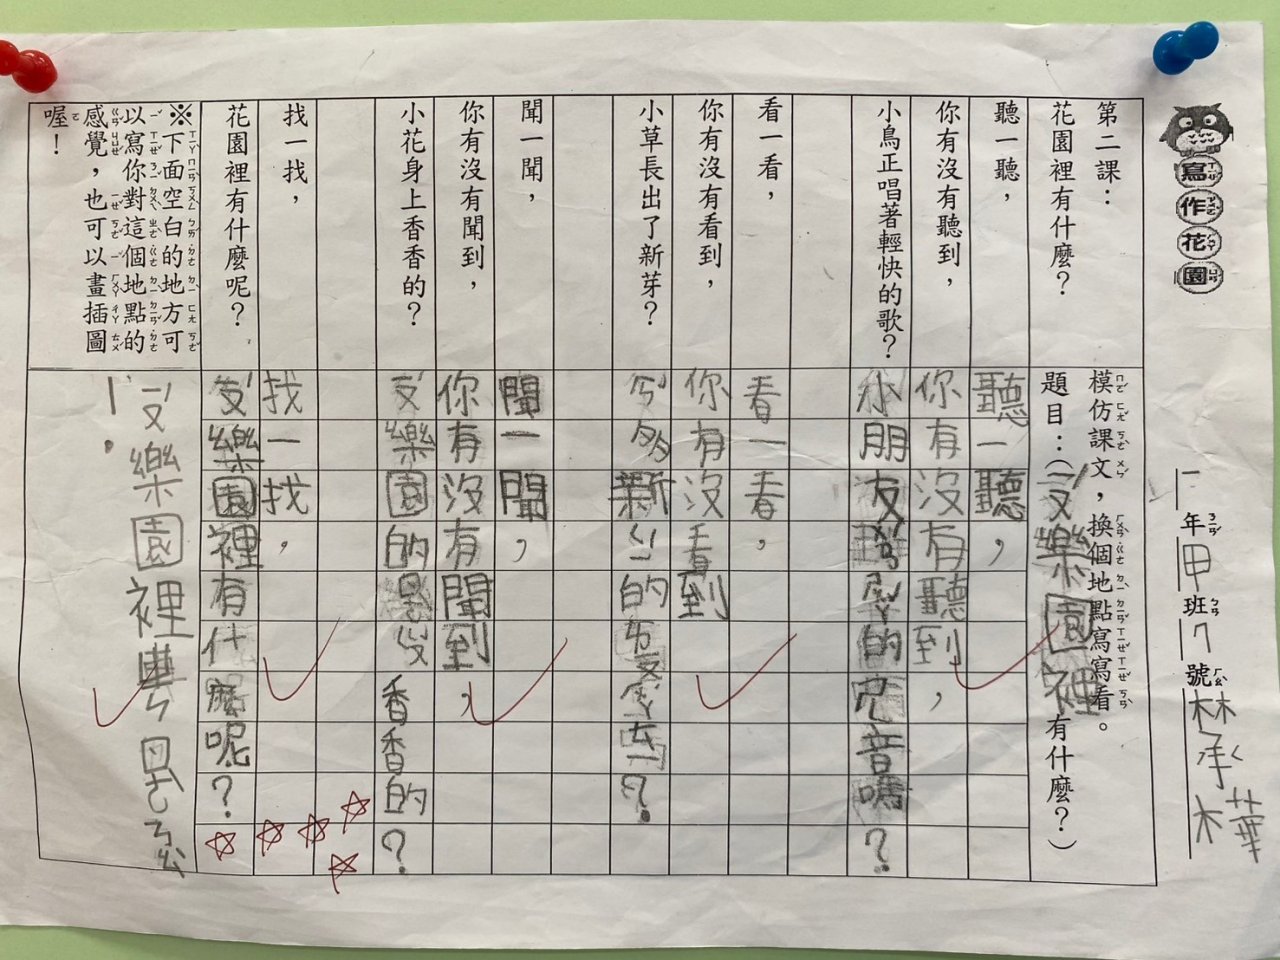 寫作花園
一年甲班7號林承樺
第二課：
花園裡有什麼？
聽一聽，
你有沒有聽到，
小鳥正唱著輕快的歌？
看一看，
你有沒有看到，
小草長出了新芽？
聞一聞，
你有沒有聞到，
小花身上香香的？
找一找，
花園裡有什麼呢？
※下面空白的地方可
以寫你對這個地點的
感覺，也可以畫插圖
喔！
模仿課文，換個地點寫寫看。
題目：（ㄧㄡˊ樂園裡有什麼？）
聽一聽，
你有沒有聽到，
小朋友
的
音
？
看一看，
你有沒有看到
新
的
？
聞一聞，
你有沒有聞到，
ㄧㄡˊ樂園的
香香的？
找一找，
ㄧㄡˊ樂園裡有什麼呢？
ㄧㄡˊ樂園裡